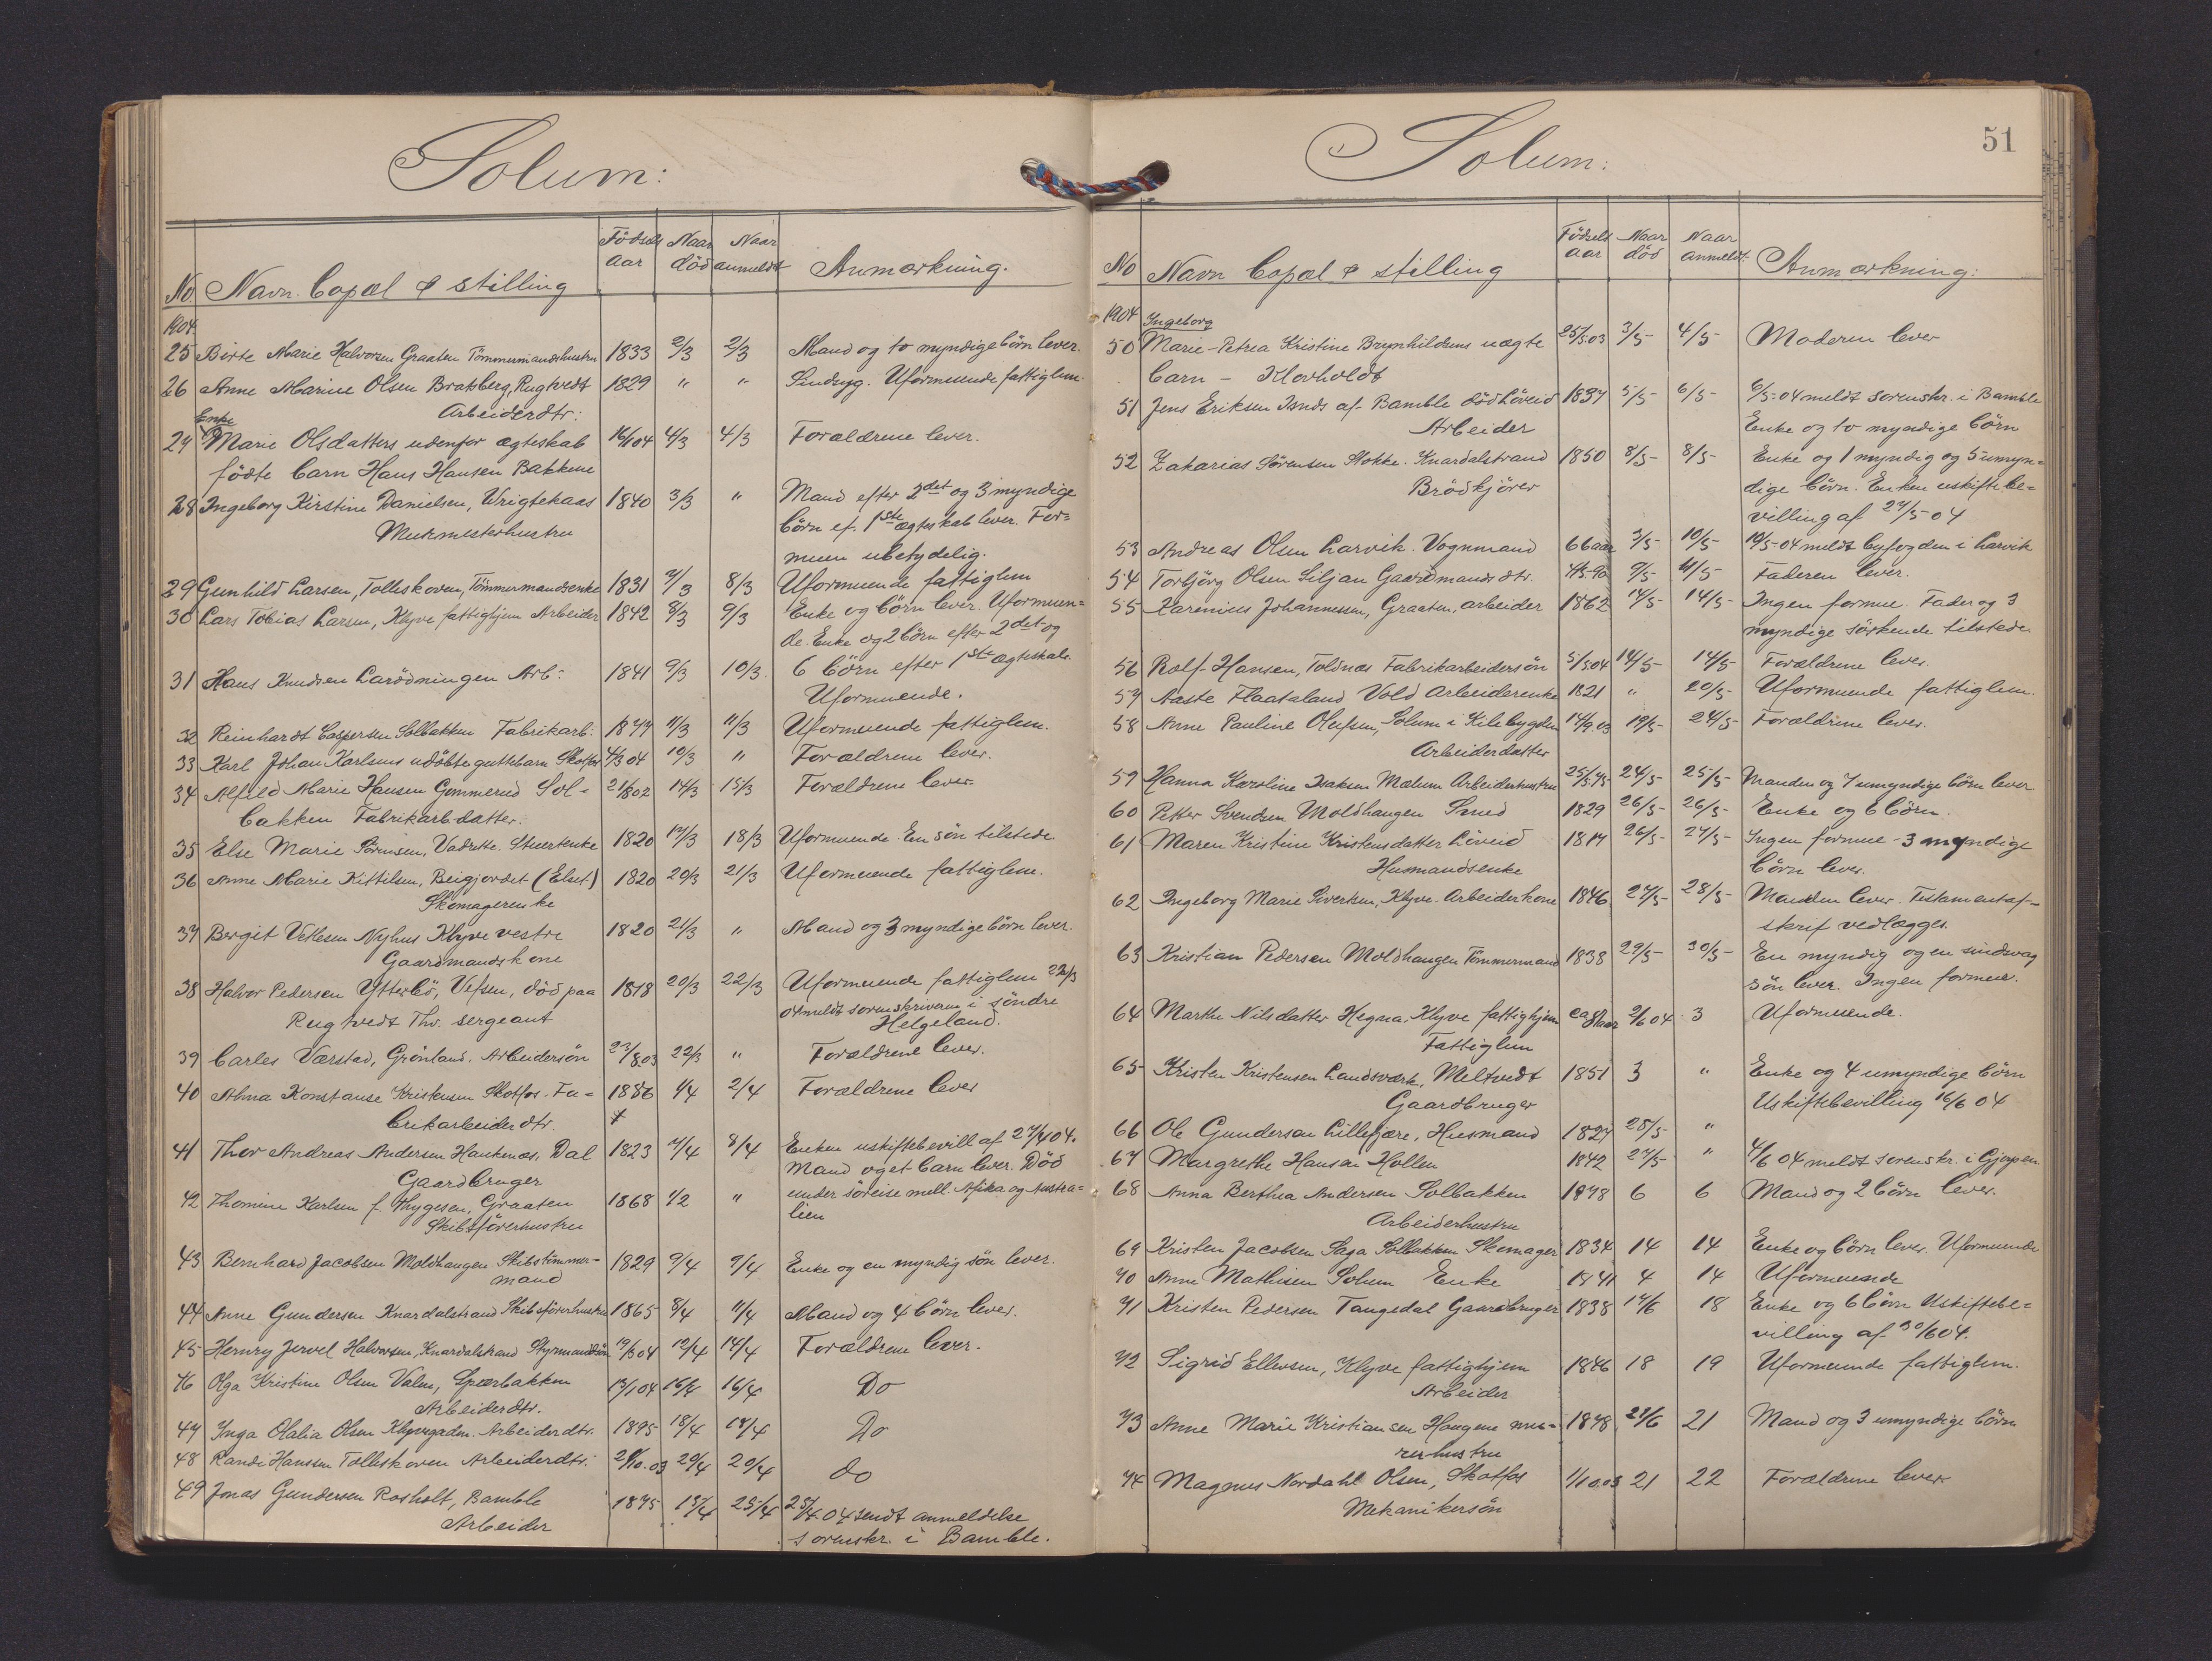 Solum:
No Navn. Bopæl & stilling Fødsels aar Naar död Naar anmeldt Anmærkning.
1904.
25 Birte Marie Halvorsen Graaten Tömmermandshustru 1833 2/3 2/3 Mand og to myndige börn lever.
26 Anne Marine Olsen Bratsberg, Rugtvedt 1829 " " Sindssyg. Uformuende fattiglem.
Enke Arbeiderdtr:
27 Marie Olsdatters udenfor ægteskab 16/1 04 4/3 4/3 Forældrene lever.
födte barn Hans Hansen Bakkene
28 Ingeborg Kirstine Danielsen, Wrigtekaas 1840 3/3 " Mand efter 2det og 3 myndige
Murmesterhustru börn ef. 1ste ægteskab lever. For=
muen ubetydelig.
29 Gunhild Larsen, Tolleskoven, Tömmermandsenke 1831 7/3 8/3 Uformuende fattiglem
30 Lars Tobias Larsen, Klyve fattighjem Arbeider 1842 8/3 9/3 Enke og börn lever. Uformuen=
de. Enke og 2 börn efter 2det og
31 Hans Knudsen Larödningen Arb: 1841 9/3 10/3. 6 börn efter 1ste ægteskab.
Uformuende.
32 Reinhardt Caspersen Solbakken Fabrikarb: 1877 11/3 11/3 Uformuende fattiglem.
33 Karl Johan Karlsens udöbte guttebarn Skotfos 4/3 04 10/3 " Forældrene lever.
34 Alfild Marie Hansen Gommerud Sol- 21/8 02 14/3 15/3 Forældrene lever
bakken Fabrikarb.datter.
35 Else Marie Sörensen, Vadrette. Stuertenke 1820 17/3 18/3 Uformuende. En sön tilstede
36 Anne Marie Kittilsen, Beigjordet (Elset) 1820 20/3 21/3 Uformuende fattiglem.
Skomagerenke
37 Bergit Vetlesen Nyhus Klyve vestre 1820 21/3 " Mand og 3 myndige börn lever.
Gaardmandskone
38 Halvor Pedersen Ytterbö, Vefsen, död paa 1818 20/3 22/3 Uformuende fattiglem 22/3
Rugtvedt Thv. sergeant 04 meldt sorenskriveren i söndre
Helgeland.
39 Carles Værstad, Grönland. Arbeidersön 23/8 03 22/3 " Forældrene lever.
40 Alma Konstanse Kristensen Skotfos. Fa= 1886 1/4 2/4 Forældrene lever
brikarbeiderdtr.
41 Thor Andreas Andersen Haukenæs. Dal 1823 7/4 8/4 Enken uskiftebevill af 27/4 04.
Gaardbruger Mand og et barn lever. Död
42 Thomine Karlsen f. Thygesen, Graaten 1868 1/2 " under söreise mell. Afrika og Austra=
Skibsförerhustru lien
43 Bernhard Jacobsen Moldhaugen Skibstömmer- 1829 9/4 9/4 Enke og en myndig sön lever.
mand
44 Anne Gundersen Knardalstrand Skibsförerhustru 1865 8/4 11/4 Mand og 4 börn lever.
45 Henry Jervel Halvorsen, Knardalstrand Styrmandssön 19/3 04 12/4 14/4 Forældrene lever.
46 Olga Kristine Olsen Valen, Sparbakken 13/1 04 16/4 16/4 Do
Arbeiderdtr.
47 Inga Olalia Olsen Klyvegaden. Arbeiderdtr. 1895 18/4 18/4 Do
48 Randi Hanssen Tolleskoven Arbeiderdtr. 21/10.03 20/4 20/4 do
49 Jonas Gundersen Rosholt, Bamble 1875 15/4 25/4 25/4.04 sendt anmeldelse
Arbeider sorenskr. i Bamble.
51
Solum:
No Navn Bopæl & stilling Fødsels aar Naar död Naar anmeldt. Anmærkning:
1904 Ingeborg
50 Marie-Petrea Kristine Brynhildsens uægte 25/5 03 3/5- 4/5- Moderen lever
barn - Klovholdt
51 Jens Eriksen Isnds af Bamble död Löveid 1837 5/5- 6/5- 6/5-04 meldt sorenskr. i Bamble
Arbeider Enke og to myndige börn
52 Zakarias Sörensen Stokke. Knardalstrand 1850 8/5- 8/5- Enke og 1 myndig og 5 umyn=
Brödkjörer dige börn. Enken uskiftebe=
villing af 27/5-04
53 Andreas Olsen Larvik. Vognmand 66 aar 3/5- 10/5- 10/5-04 meldt byfogden i Larvik
54 Torbjörg Olsen Siljan Gaardmands dtr. 4/5-90 9/5- 11/5- Faderen lever.
55 Karenius Johannessen, Graaten. arbeider 1862 14/5- 14/5- Ingen formue. Fader og 3
myndige söskende tilstede.
56 Rolf Hansen, Toldnæs Fabrikarbeidersön 5/5 04 14/5- 14/5- Forældrene lever.
57 Aaste Flaataland Vold Arbeiderenke 1821 " 20/5- Uformuende fattiglem.
58 Anne Pauline Olufsen, Solum i Kilebygden 14/9 03 19/5- 24/5- Forældrene lever.
Arbeiderdatter
59 Hanna Karoline Isaksen Mælum Arbeiderhustru 25/5.75 24/5- 25/5- Manden og 7 umyndige börn lever
60 Petter Svendsen Moldhaugen Smed 1829 26/5- 26/5- Enke og 6 börn.
61 Maren Kristine Kristensdatter Löveid 1817 26/5- 27/5- Ingen formue - 3 myndige
Husmandsenke börn lever.
62 Ingeborg Marie Sivertsen, Klyve. Arbeiderkone 1846 27/5- 28/5- Manden lever. Testamentaf-
skrift vedlægges.
63 Kristian Pedersen Moldhaugen Tömmermand 1838 29/5- 30/5- En myndig og en sindsvag
sön lever. Ingen formue.
64 Marthe Nilsdatter Hegna. Klyve fattighjem 2/6 04 3 Uformuende.
Fattiglem
65 Kristen Kristensen Landsværk, Meltvedt 1851 3 " Enke og 4 umyndige börn
Gaardbruger Uskiftebevilling 16/6 04
66 Ole Gundersen Lillefjære, Husmand 1827 28/5 "
67 Margrethe Hansen Hollen 1842 27/5- " 4/6 04 meldt sorenskr. i Gjerpen
68 Anna Berthea Andersen Solbakken 1848 6 6 Mand og 2 börn lever.
Arbeiderhustru
69 Kristen Jacobsen Saga Solbakken Skomager 1834 14 14 Enke og börn lever. Uformuende
70 Anne Mathisen Solum Enke 1841 4 14 Uformuende
71 Kristen Pedersen Tangedal Gaardbruger 1838 17/6 18 Enke og 6 börn Uskiftebe=
villing af 30/6 04.
72 Sigrid Ellevsen, Klyve fattighjem 1846 18 19 Uformuende fattiglem.
Arbeider
73 Anne Marie Kristiansen Haugene mu= 1878 21/6 21 Mand og 3 umyndige börn
rerhustru
74 Magnus Nordahl Olsen, Skotfos 1/10.03 21 22 Forældrene lever
Mekanikersön